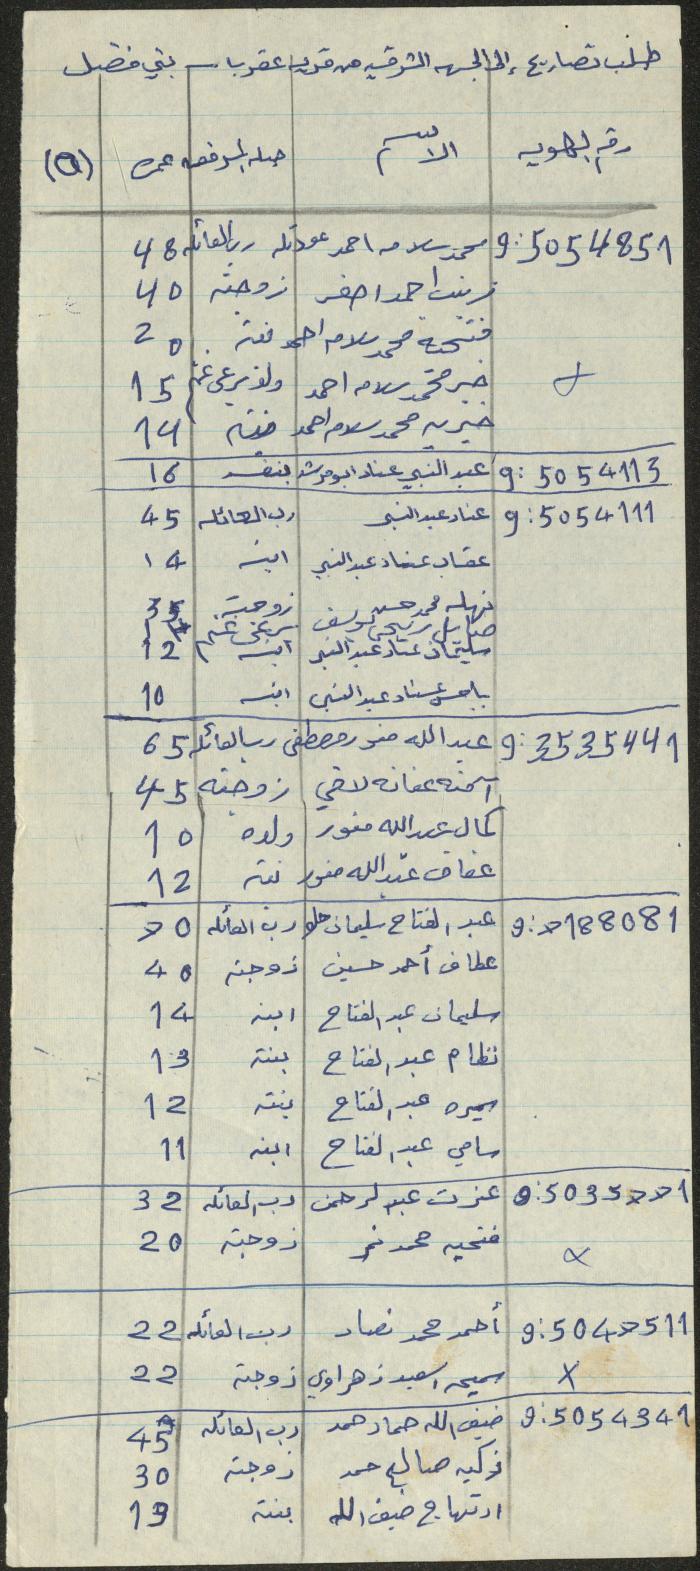 طلب تصاريح إلى الجهه الشرقيه من قرية عقربا - بني فضل
رقم الهويه الاسم صلة المرفقه عمره (٥)
9:5054851 محمد سلامه احمد عودلله رب العائله 48
زينب احمد اصفر زوجته 40
فتحية محمد سلامه احمد بنته 20
خير محمد سلامه احمد ولد يرعى غنم 15
خيريه محمد سلامه احمد بنته 14
9:5054113 عبد النبي عناد ابو مرشد بنفسه 16
9:5054111 عناد عبد النبي رب العائله 45
عقاب عناد عبد النبي ابنه 14
نهله محمد حسن زوجته 35
يوسف يرعى غنم
سليمان عناد عبد النبي ابنه 12
عناد عبد النبي ابنه 10
9:3535441 عبد الله منور مصطفى رب العائله 65
امنه لافي زوجته 45
كمال عبد الله منور ولده 10
عفاف عبد الله منور بنته 12
9:7188081 عبد الفتاح سليمان رب العائله 70
عطاف أحمد حسين زوجته 40
سليمان عبد الفتاح ابنه 14
نظام عبد الفتاح بنته 13
سميره عبد الفتاح بنته 12
سامي عبد الفتاح ابنه 11
9:5035771 عزت عبد الرحمن رب العائله 32
فتحيه محمد نمر زوجته 20
9:5047511 أحمد محمد نصار رب العائله 22
سميحه اسعيد زهراوي زوجته 22
9:5054341 ضيف الله حماد حمد رب العائله 45
زكيه صالح حمد زوجته 30
ابتهاج ضيف الله بنته 19